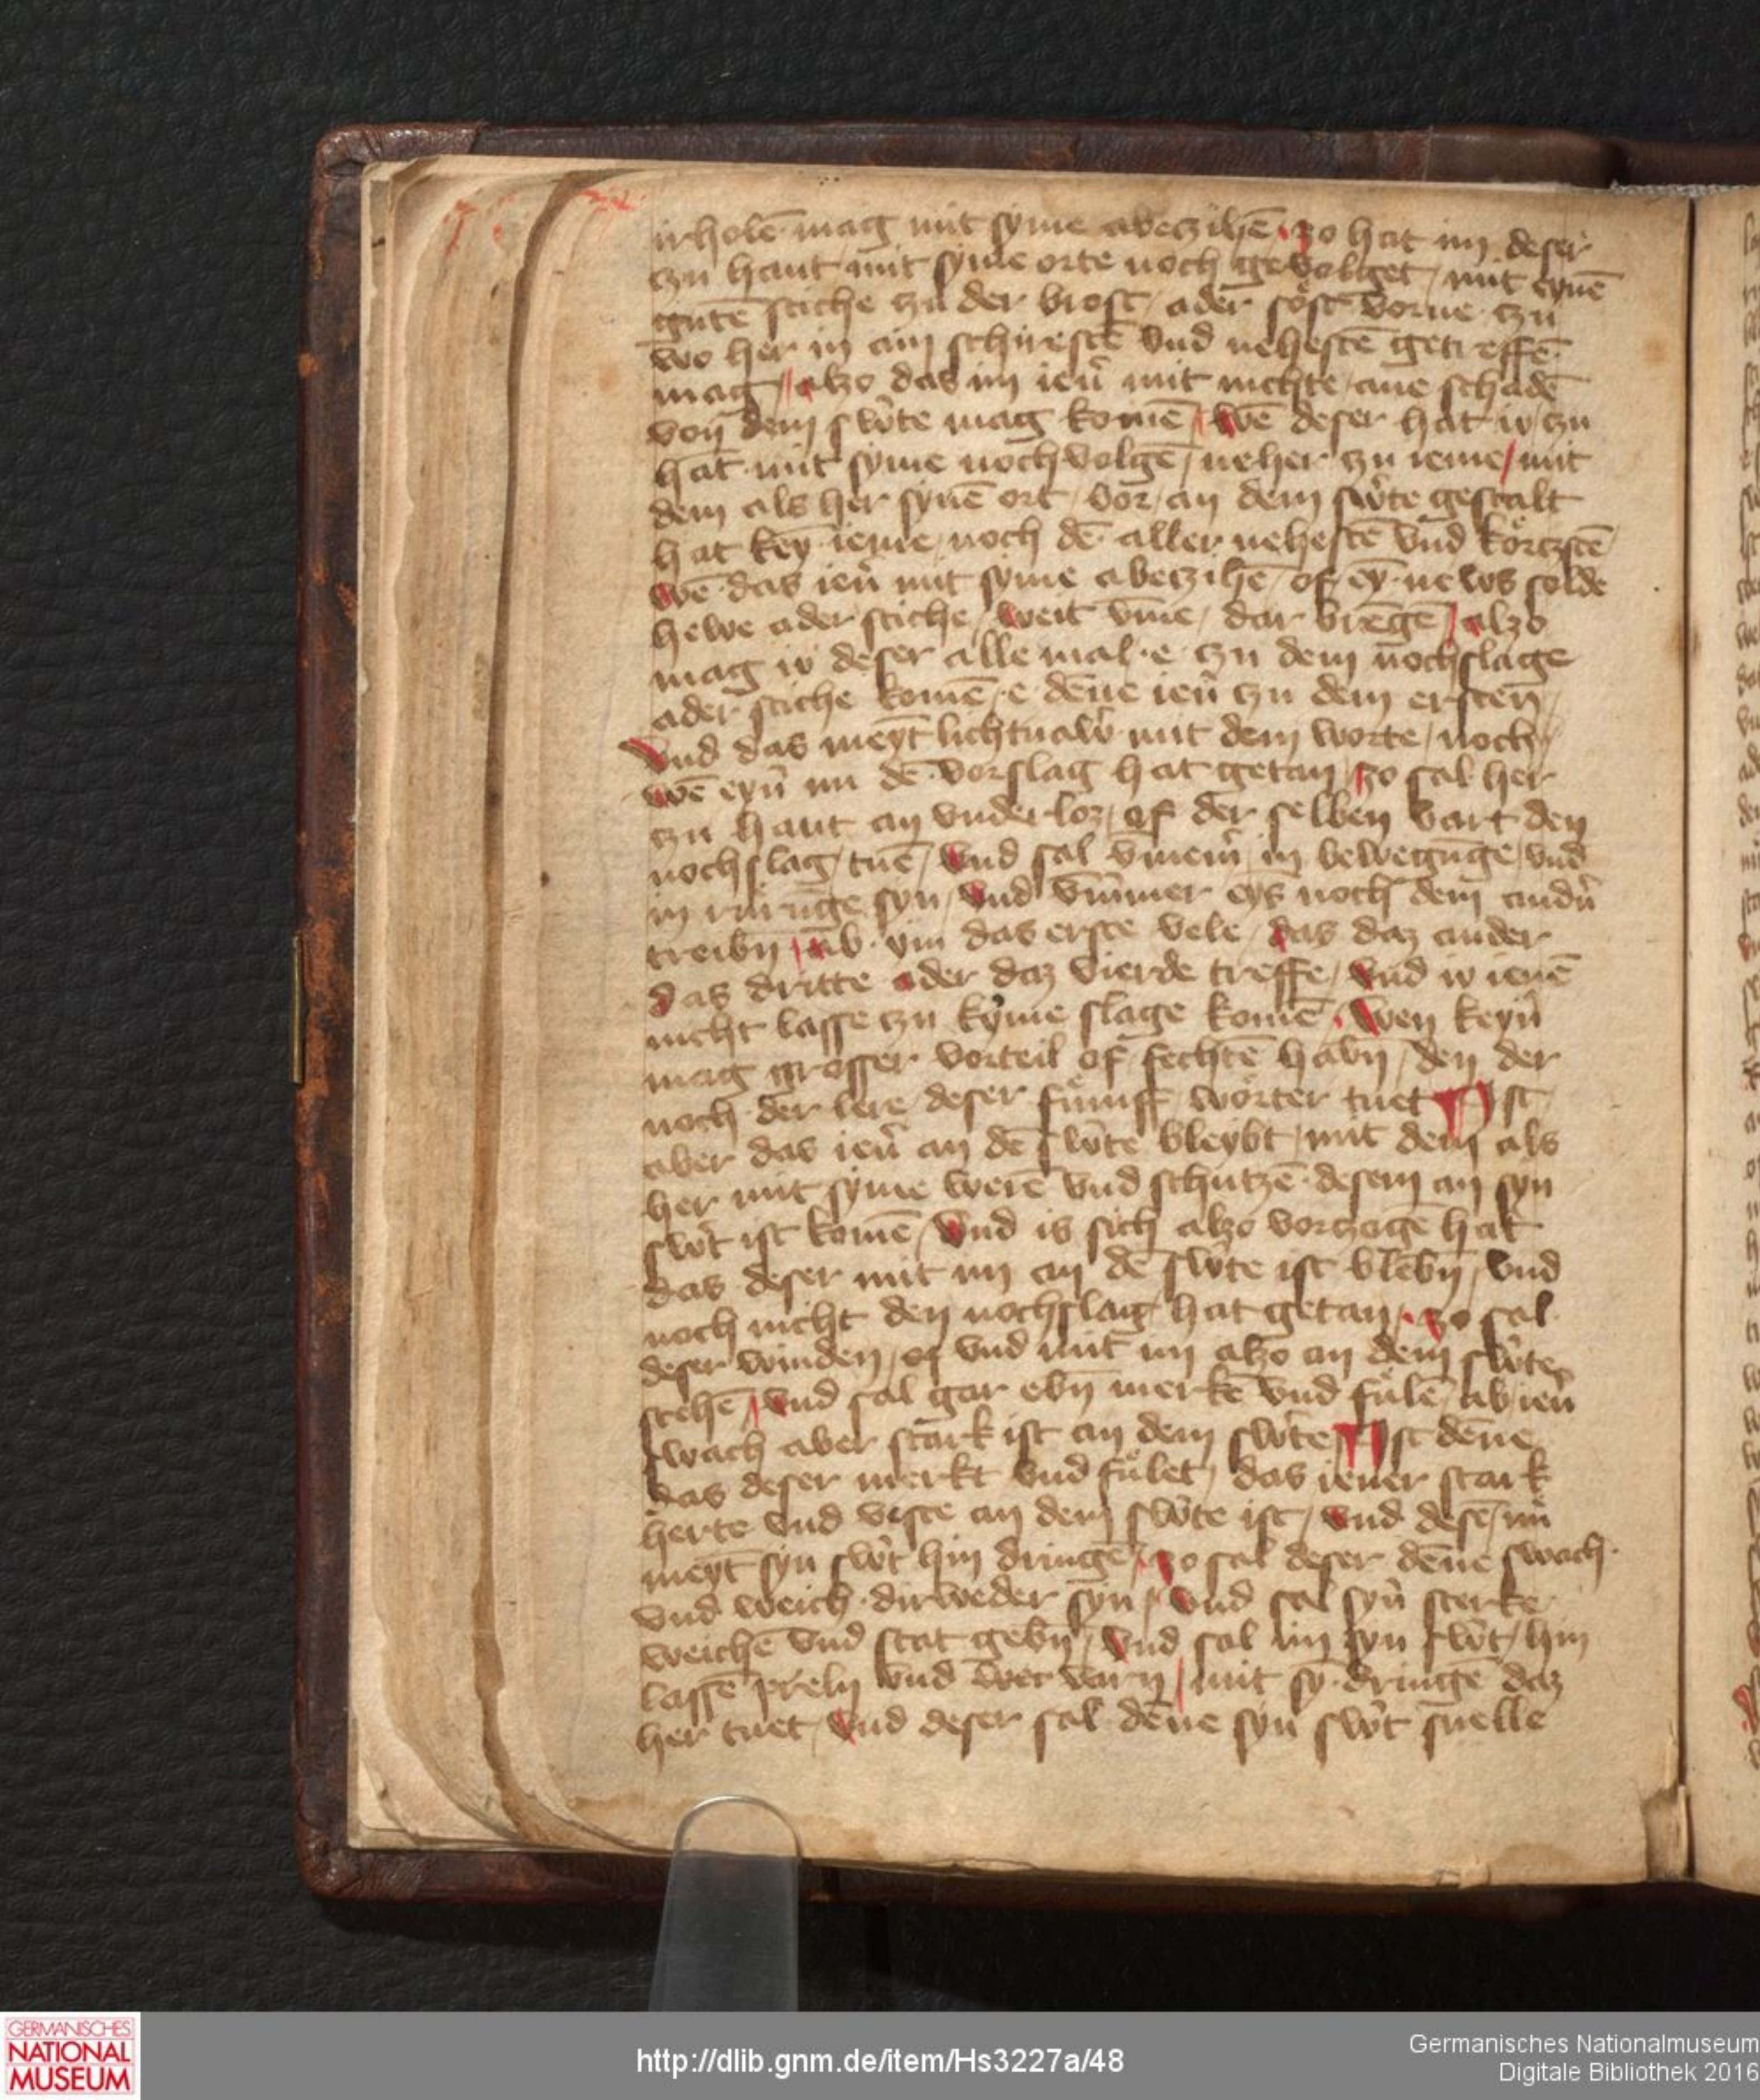 irholē mag mit syme abeczihē / zo hat im deser
czu hant mit syme orte noch gevolget / mit eynē
gutē stiche czu der brost / ader söste vorne czu
wo her in am schirestē vnd nehestē getreffē
mag / alzo das im ien᷑ mit nichte / ane schadē
von dem sw᷑te mag komē / wē deser hat io / czu
hāt mit syme nochvolgē / neher czu ieme / mit
dem als her synē ort / vor / an dem sw᷑te gestalt
hat key᷑ ieme / noch dē aller nehestē vnd körczstē
wē das ien᷑ mit syme abeczihē / of ey᷑ news solde
hewe ader stiche / weit v̄me / dar brēgē / alzo
mag io deser alle mal e czu dem nochslage
ader stiche komē / e dēne ien᷑ czu dem ersten /
Vnd das meynt lichtnaw᷑ mit dem worte / noch /
wē eyn᷑ im dē vorslag hat getan / zo sal her
czu hant an vnderloz / of der selben vart den
nochslag tuē / vnd sal v̄mem᷑ in bewegūge / vnd
in rürūge syn / vnd v̄mmer eyns noch dem andn᷑
treibn / ab ym das erste vele / das daz ander
das dritte ader daz vierde treffe / vnd io ienē
nicht lasse czu kyme slage komē / wen keyn᷑
mag grosser vorteil of fechtē habn / den der
noch der lere deser fümff wörter tuet ¶ Ist
aber das ien᷑ an dē sw᷑te bleybt / mit dem als
her mit syme werē vnd schutczē desem an syn
sw᷑t ist komē / vnd is sich alzo vorczogē hat
das deser mit im an dē sw᷑te ist blebn / vnd
noch nicht den nochslag hat getan / zo sal
deser winden / of vnd mit im alzo an dem sw᷑te
stehē / vnd sal gar ebn merkē vnd fülē / ab ien᷑
swach aber stark ist an dem sw᷑te ¶ Ist dēne
das deser merkt vnd fület / das iener stark
herte vnd veste an dem sw᷑te ist / vnd desē / nü
meynt syn sw᷑t hin dringē / zo sal deser dēne swach
vnd weich dirweder syn / vnd sal syn᷑ sterke
weichē vnd stat gebn / vnd sal im syn sw᷑t / hin
lassē preln vnd wec varn / mit sy᷑ dringē daz
her tuet / vnd deser sal dēne syn sw᷑t snelle
GERMANISCHES
NATIONAL
MUSEUM
http://dlib.gnm.de/item/Hs3227a/48
Germanisches Nationalmuseum
Digitale Bibliothek 2016